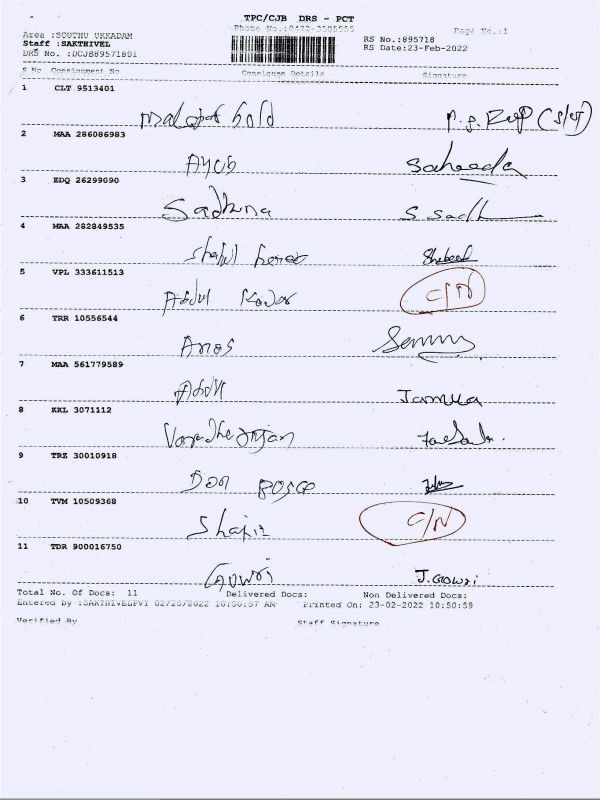 TPC/CJB DRS - PCT
Phone No.:0422-3505555
Page No.:1
Area :SOUTHU UKKADAM
Staff :SAKTHIVEL
DRS No. :DCJB89571801
RS No.:895718
RS Date:23-Feb-2022
S No Consignment No Consignee Details Signature
1 CLT 9513401
2 MAA 286086983
Ayub Saheeda
3 EDQ 26299090
Sadhina S Sadh
4 MAA 282849535
Shahul
5 VPL 333611513
Abdul Kader C/N
6 TRR 10556544
Anos
7 MAA 561779589
Abdul Jamila
8 KKL 3071112
9 TRZ 30010918
Don Bosco
10 TVM 10509368
C/N
11 TDR 900016750
Gowri J. Gowri
Total No. Of Docs: 11 Delivered Docs: Non Delivered Docs:
Entered By :SAKTHIVELPVT 02/23/2022 10:50:57 AM Printed On: 23-02-2022 10:50:59
Verified By Staff Signature